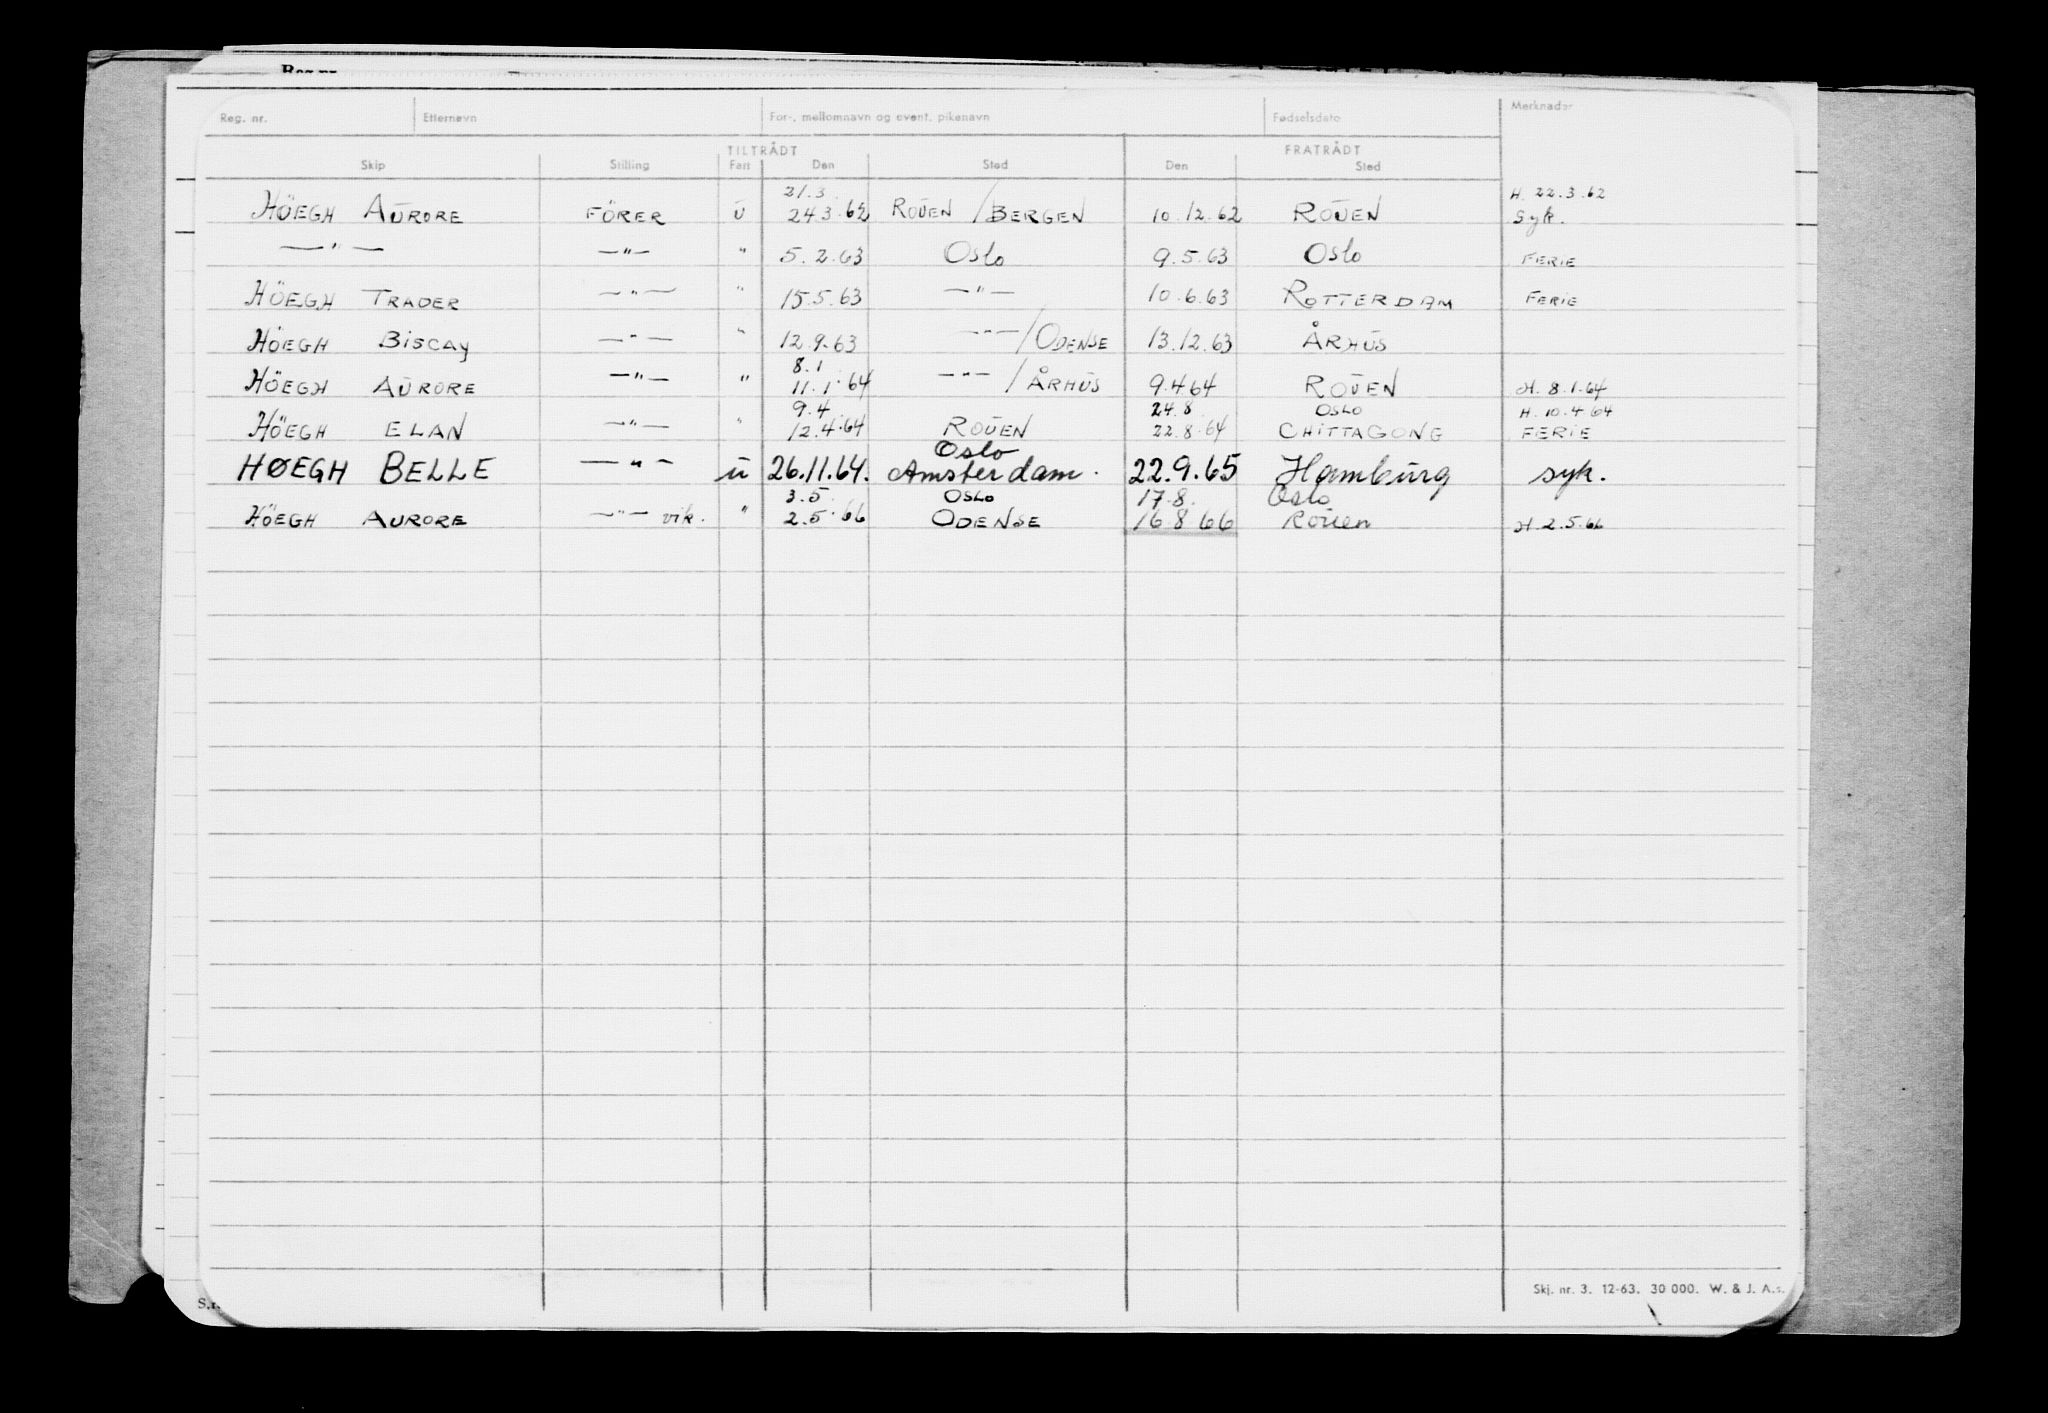 Reg. nr. Etternavn For-, mellomnavn og event. pikenavn Fødselsdato Merknader
TILTRÅDT FRATRÅDT
Skip Stilling Fart Den Sted Den Sted
21.3 H. 22.3.62
HÖEGH AURORE FÖRER U 24.3.62 ROUEN / BERGEN 10.12.62 ROUEN Syk.
—"— —"— " 5.2.63 Oslo 9.5.63 Oslo FERIE
HÖEGH TRADER —"— " 15.5.63 —"— 10.6.63 ROTTERDAM FERIE
HÖEGH BISCAY —"— " 12.9.63 —"— / ODENSE 13.12.63 ÅRHUS
8.1
HÖEGH AURORE —"— " 11.1.64 —"— / ÅRHUS 9.4.64 ROUEN H. 8.1.64
9.4 24.8 OSLO H. 10.4.64
HÖEGH ELAN —"— " 12.4.64 ROUEN 22.8.64 CHITTAGONG FERIE
Oslo
HØEGH BELLE —"— U 26.11.64. Amsterdam. 22.9.65 Hamburg syk.
3.5. OSLO 17.8. Oslo
HÖEGH AURORE —"— vik. " 2.5.66 ODENSE 16.8.66 Rouen H. 2.5.66
Skj. nr. 3. 12-63. 30 000. W. & J. A.s.